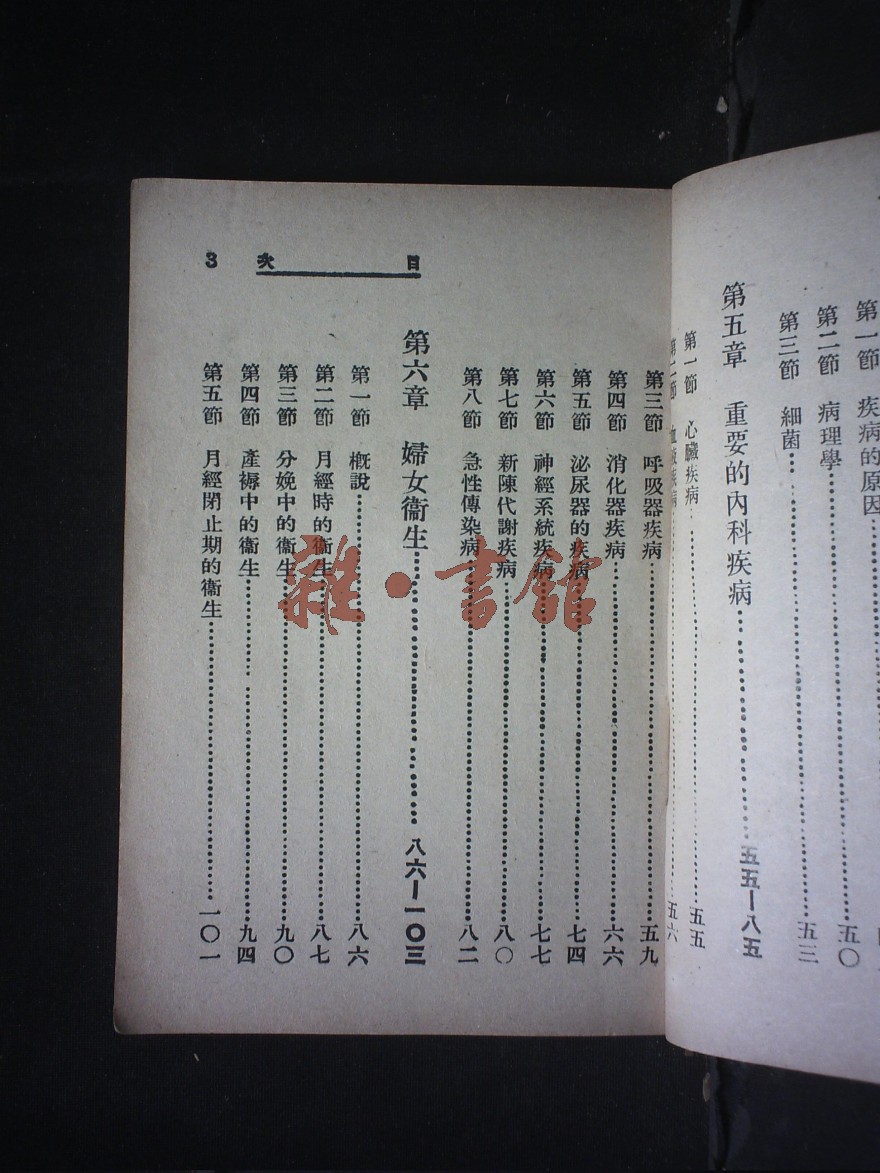 第一節 疾病的原因
第二節 病理學 五〇
第三節 細菌 五三
第五章 重要的內科疾病 五五—八五
第一節 心臟疾病 五五
第二節 血液疾病 五六
目次 3
第三節 呼吸器疾病 五九
第四節 消化器疾病 六六
第五節 泌尿器的疾病 七四
第六節 神經系統疾病 七七
第七節 新陳代謝疾病 八〇
第八節 急性傳染病 八二
第六章 婦女衞生 八六—一〇三
第一節 概說 八六
第二節 月經時的衞生 八七
第三節 分娩中的衞生 九〇
第四節 產褥中的衞生 九四
第五節 月經閉止期的衞生 一〇一
雜·書館